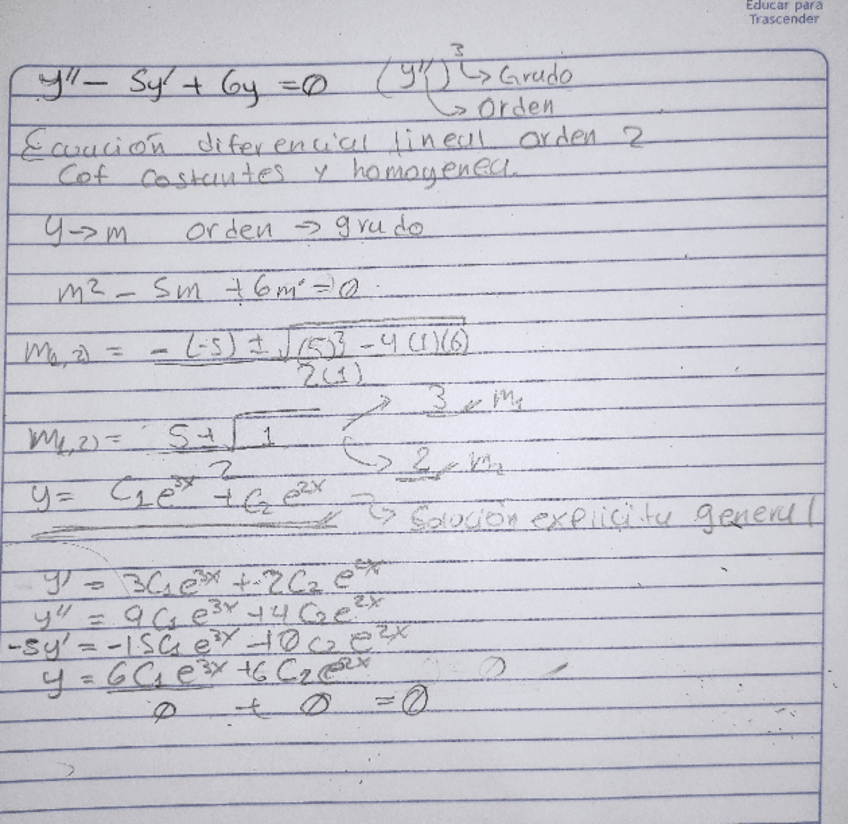 Educar para
Trascender
y'' - 5y' + 6y = 0 (y'')³ → Grado
→ Orden
Ecuación diferencial lineal orden 2
Cof costantes y homogenea.
y → m orden → grado
m² - 5m + 6m° = 0
m(1,2) = -(-5) ± √(5)² - 4(1)(6)
2(1)
3 m₁
m(1,2) = 5 ± √1
2
2 m₂
y = C₁e³ˣ + C₂e²ˣ → Solución explicita general
y' = 3C₁e³ˣ + 2C₂e²ˣ
y'' = 9C₁e³ˣ + 4C₂e²ˣ
-5y' = -15C₁e³ˣ - 10C₂e²ˣ
y = 6C₁e³ˣ + 6C₂e²ˣ
0 + 0 = 0